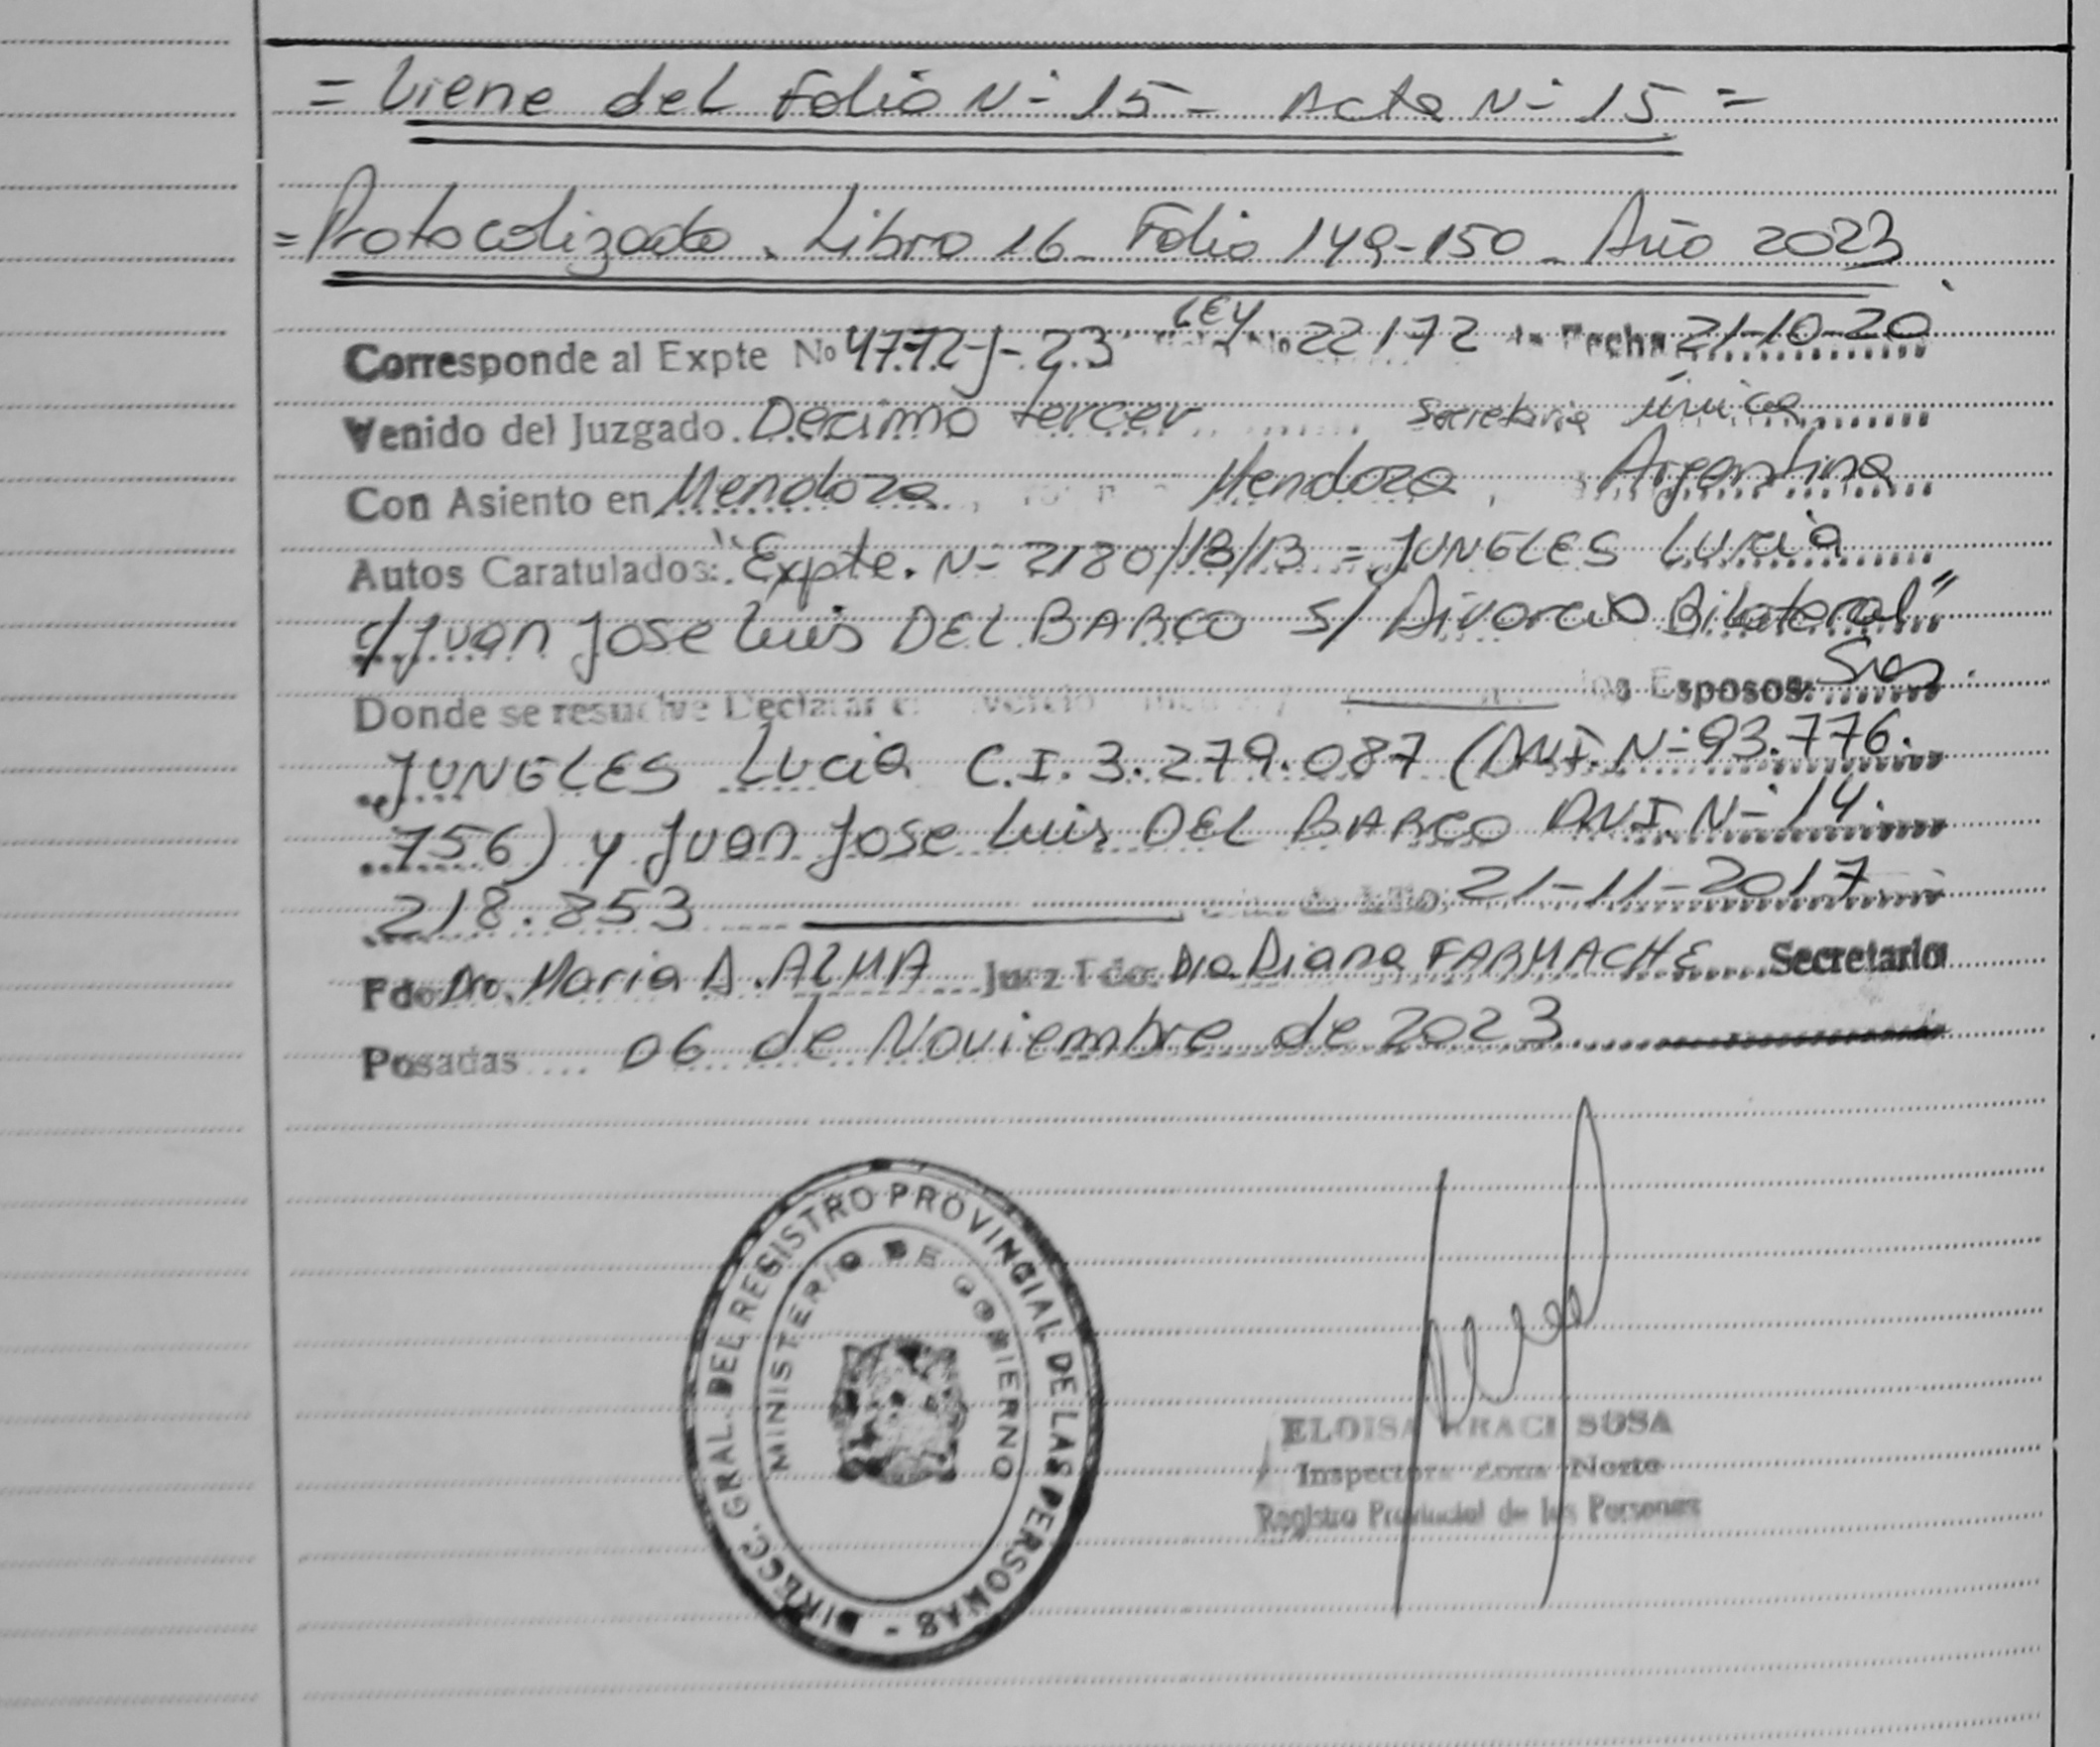 = Viene del Folio N- 15 - Acta N- 15 =
= Protocolizado. Libro 16 - Folio 149-150 - Año 2023
Corresponde al Expte Nº 4772-J-23 LEY Nº 22172 de Fecha 21-10-20
Venido del Juzgado Decimo tercer Secretaria Única
Con Asiento en Mendoza, Mendoza, Argentina
Autos Caratulados: "Expte. N- 2180/18/13 = JUNGLES Lucia
c/ Juan Jose Luis DEL BARCO S/ Divorcio Bilateral"
Donde se resuelve Declarar el los Esposos: Sres.
JUNGLES Lucia C.I. 3.279.087 (DNI. N- 93.776.
756) y Juan Jose Luis DEL BARCO DNI. N- 14.
218.853 21-11-2017
Fdo Dra. Maria D. Juez Fdo. Dra Diana FARMACHE Secretario
Posadas 06 de Noviembre de 2023
DIRECC. GRAL. DEL REGISTRO PROVINCIAL DE LAS PERSONAS -
MINISTERIO DE GOBIERNO
ELOISA ARACI SOSA
Inspectora Zona Norte
Registro Provincial de las Personas